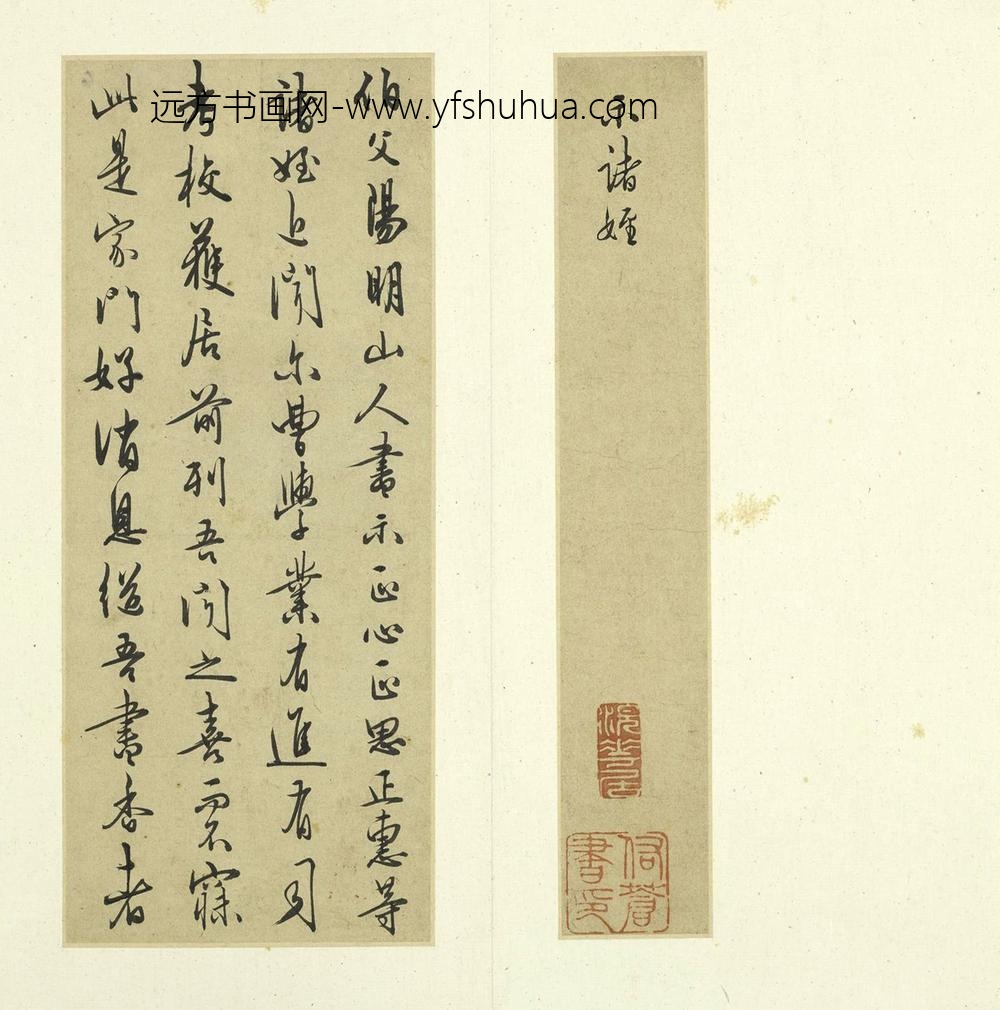 远方书画网-www.yfshuhua.com
示諸姪
伯父陽明山人書示正心正思正惠等
諸姪近聞尔曹學業有進有司
考校獲居前列吾聞之喜而不寐
此是家門好消息继吾書香者